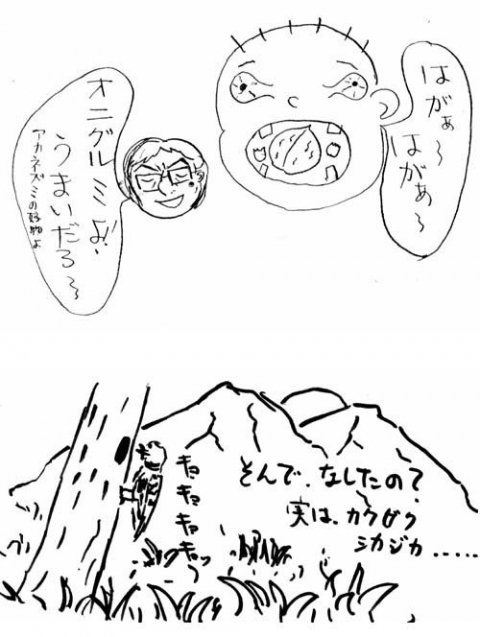 はがぁ〜
はがぁ〜
オニグルミよ!
うまいだろ〜
アカネズミの好物よ
キョ
キョ
キョ
キョッ
そんで、なしたの?
実は、カクガク
シカジカ.....